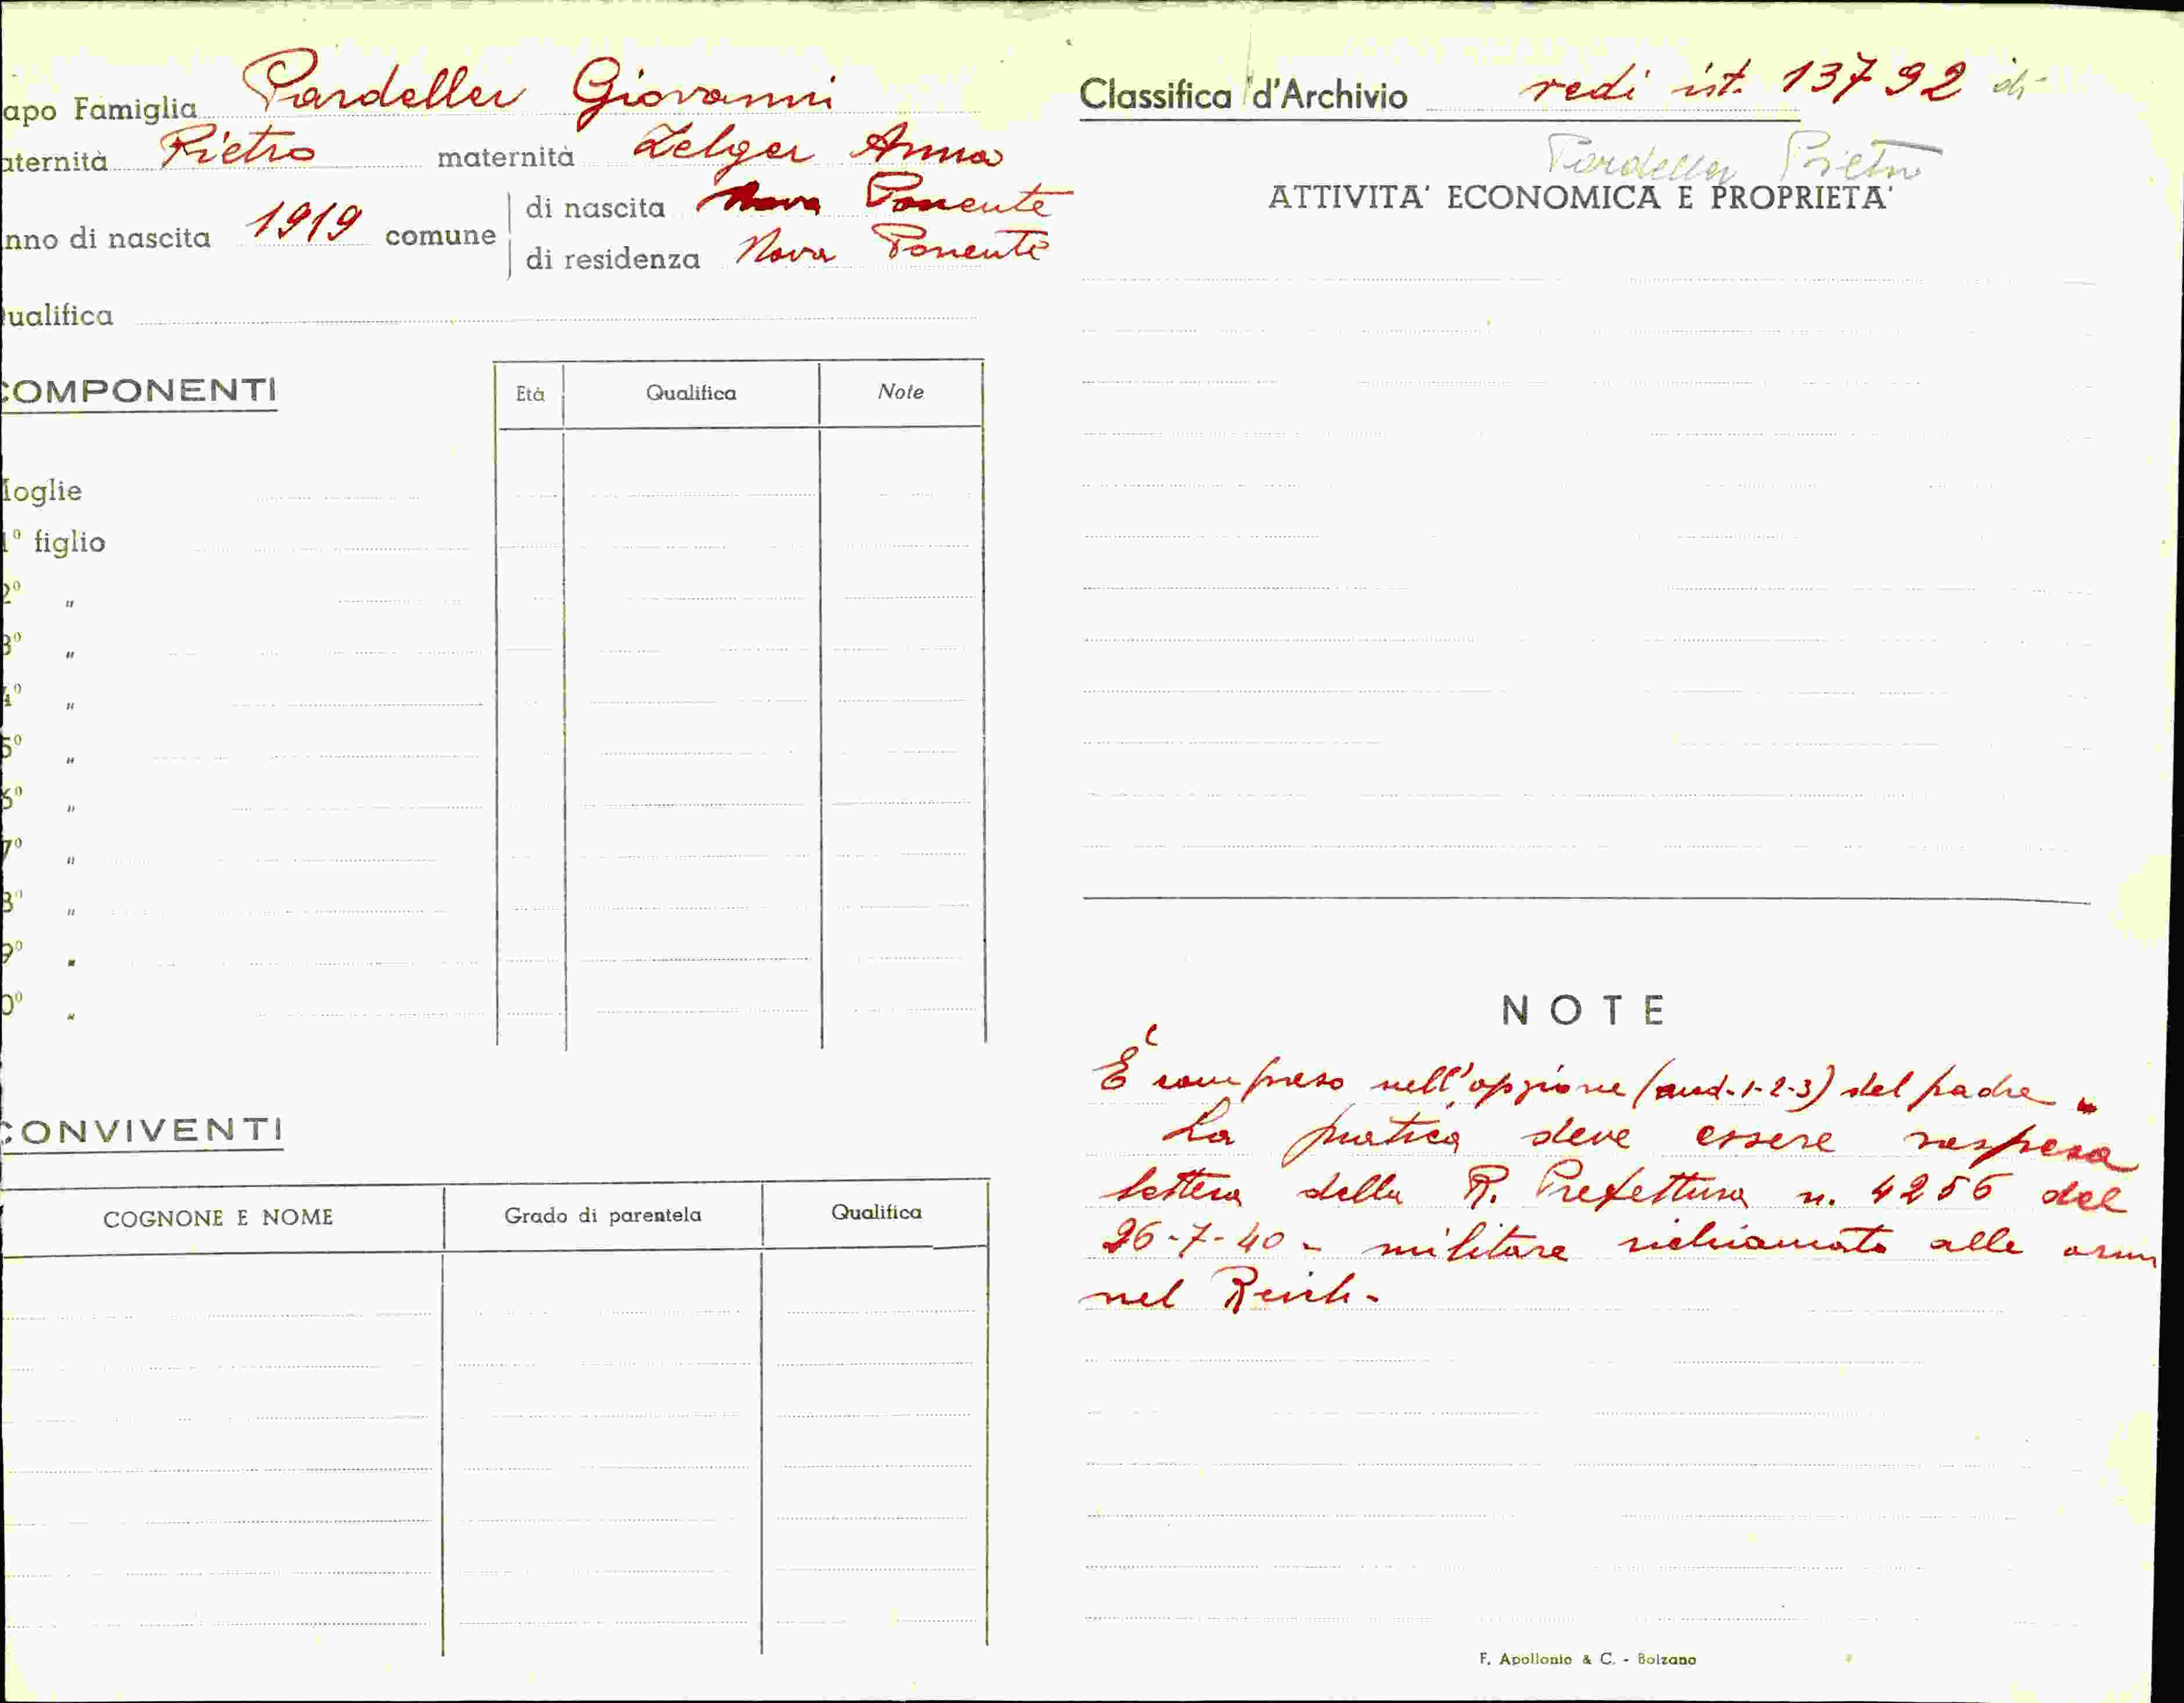 apo Famiglia Pardeller Giovanni
aternità Pietro maternità Zelger Anna
nno di nascita 1919 comune di nascita Nova Ponente
di residenza Nova Ponente
ualifica
COMPONENTI
Età Qualifica Note
Moglie
1º figlio
2º "
3º "
4º "
5º "
6º "
7º "
8º "
9º "
0º "
CONVIVENTI
COGNONE E NOME Grado di parentela Qualifica
Classifica d'Archivio vedi ist. 13792 di
Pardeller Pietro
ATTIVITA' ECONOMICA E PROPRIETA'
NOTE
È compreso nell'opzione (aud-1-2-3) del padre
La pratica deve essere sospesa
lettera della R. Prefettura n. 4256 del
26-7-40 - militare richiamato alle armi
nel Reich -
F. Apollonio & C. - Bolzano